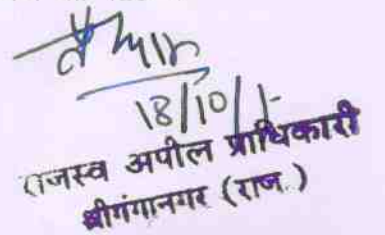 18/10/1
राजस्व अपील प्राधिकारी
श्रीगंगानगर (राज.)